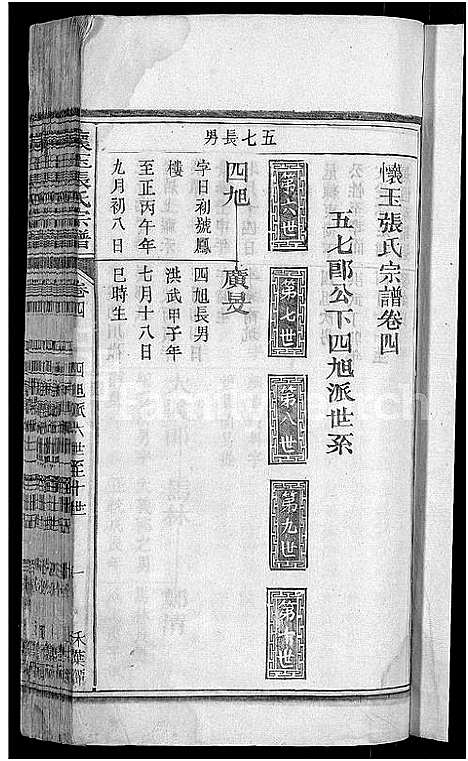 懷玉張氏宗譜卷四
五七郎公下四旭派世系
第六世
第七世
第八世
第九世
第十世
五七長男
四旭
廣旻
字日初號鳳
樓
至正丙午年
九月初八日
四旭長男
洪武甲子年
七月十八日
巳時生
懷玉張氏宗譜
卷四
四旭派六世至十世
一